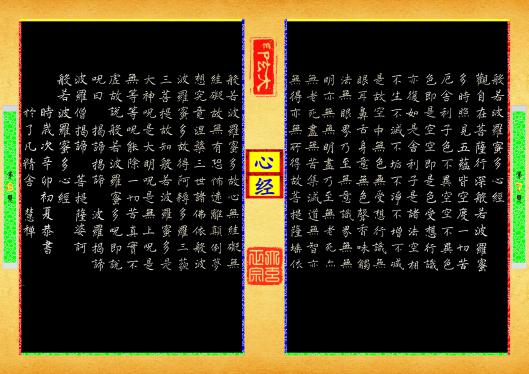 般若波羅蜜多心經
觀自在菩薩行深般若波羅蜜
多時照見五蘊皆空度一切苦
厄舍利子色不異空空不異色
色即是空空即是色受想行識
亦復如是舍利子是諸法空相
不生不滅不垢不淨不增不減
是故空中無色無受想行識無
眼耳鼻舌身意無色聲香味觸
法無眼界乃至無意識界無無
明亦無無明盡乃至無老死亦
無老死盡無苦集滅道無智亦
無得以無所得故菩提薩埵依
心
经
般若波羅蜜多故心無罣礙無
罣礙故無有恐怖遠離顛倒夢
想究竟涅槃三世諸佛依般若
波羅蜜多故得阿耨多羅三藐
三菩提故知般若波羅蜜多是
大神呪是大明呪是無上呪是
無等等呪能除一切苦真實不
虛故說般若波羅蜜多呪即說
呪曰 揭諦揭諦 波羅揭諦
波羅僧揭諦 菩提薩婆訶
般若波羅蜜多心經
時歲次辛卯初夏恭書
於了凡精舍 慧禪